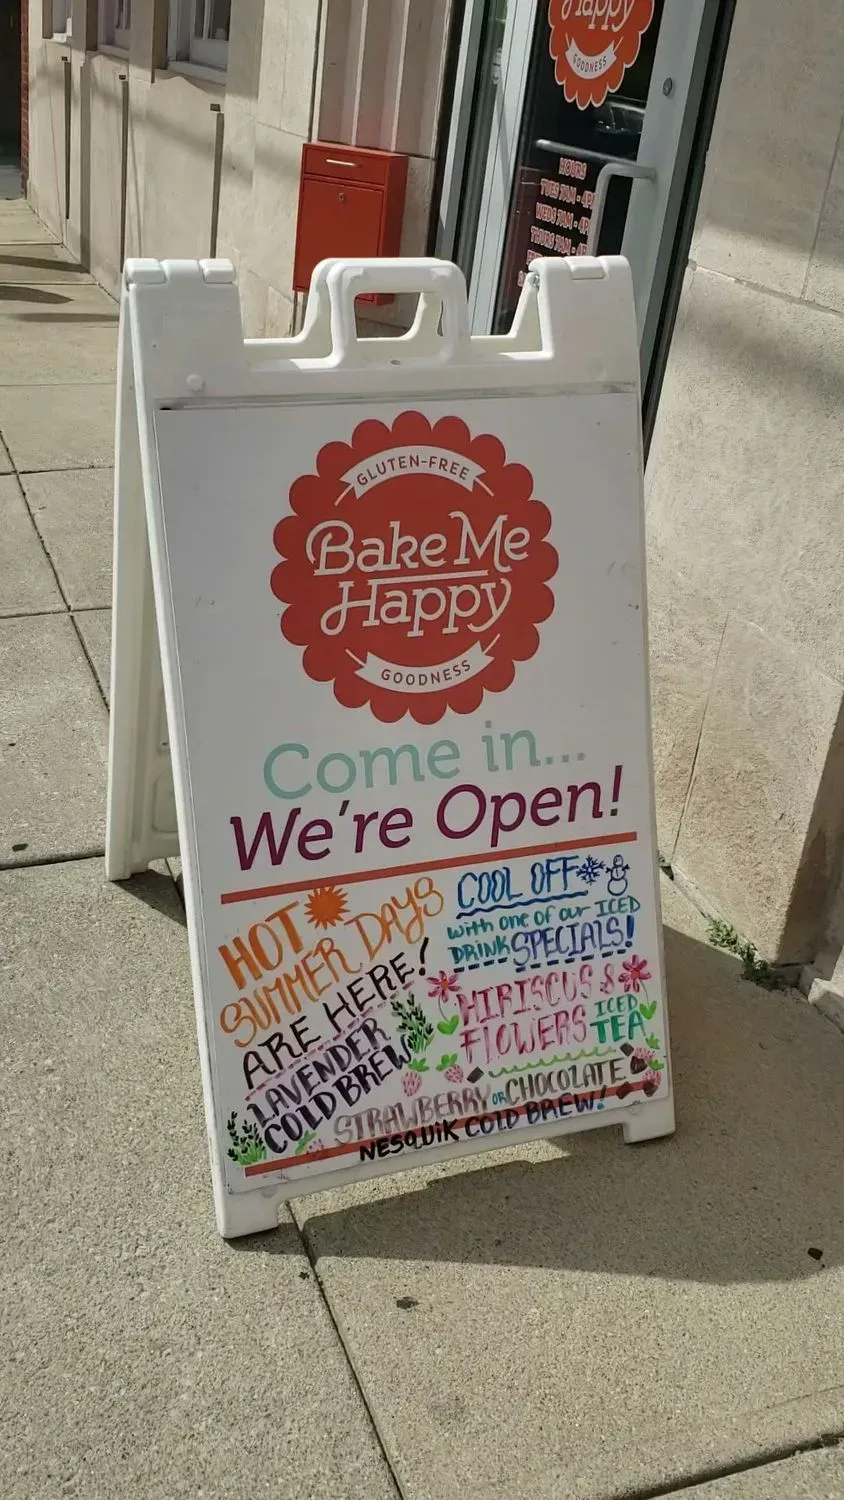 Happy
GOODNESS
HOURS
TUES 7AM - 4P
WEDS 7AM - 4P
THURS 7AM - 4P
GLUTEN-FREE
Bake Me
Happy
GOODNESS
Come in...
We're Open!
HOT
SUMMER DAYS
ARE HERE!
LAVENDER
COLD BREW
COOL OFF
with one of our ICED
DRINK SPECIALS!
HIBISCUS &
FLOWERS ICED
TEA
STRAWBERRY OR CHOCOLATE
NESQUIK COLD BREW!